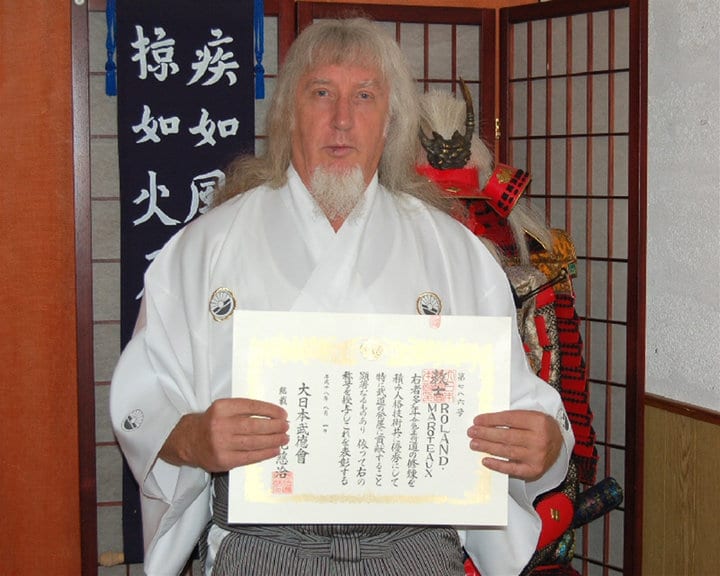 疾如風
掠如火
第七八六号
教士
ROLAND.
MAROTEAUX
右者多年武道の修練を
積み人格技術共に優秀にして
特に武道の発展に貢献すること
顕著なるものあり 依つて右の
称号を授与しこれを表彰する
平成十八年八月一
大日本武徳會
総裁